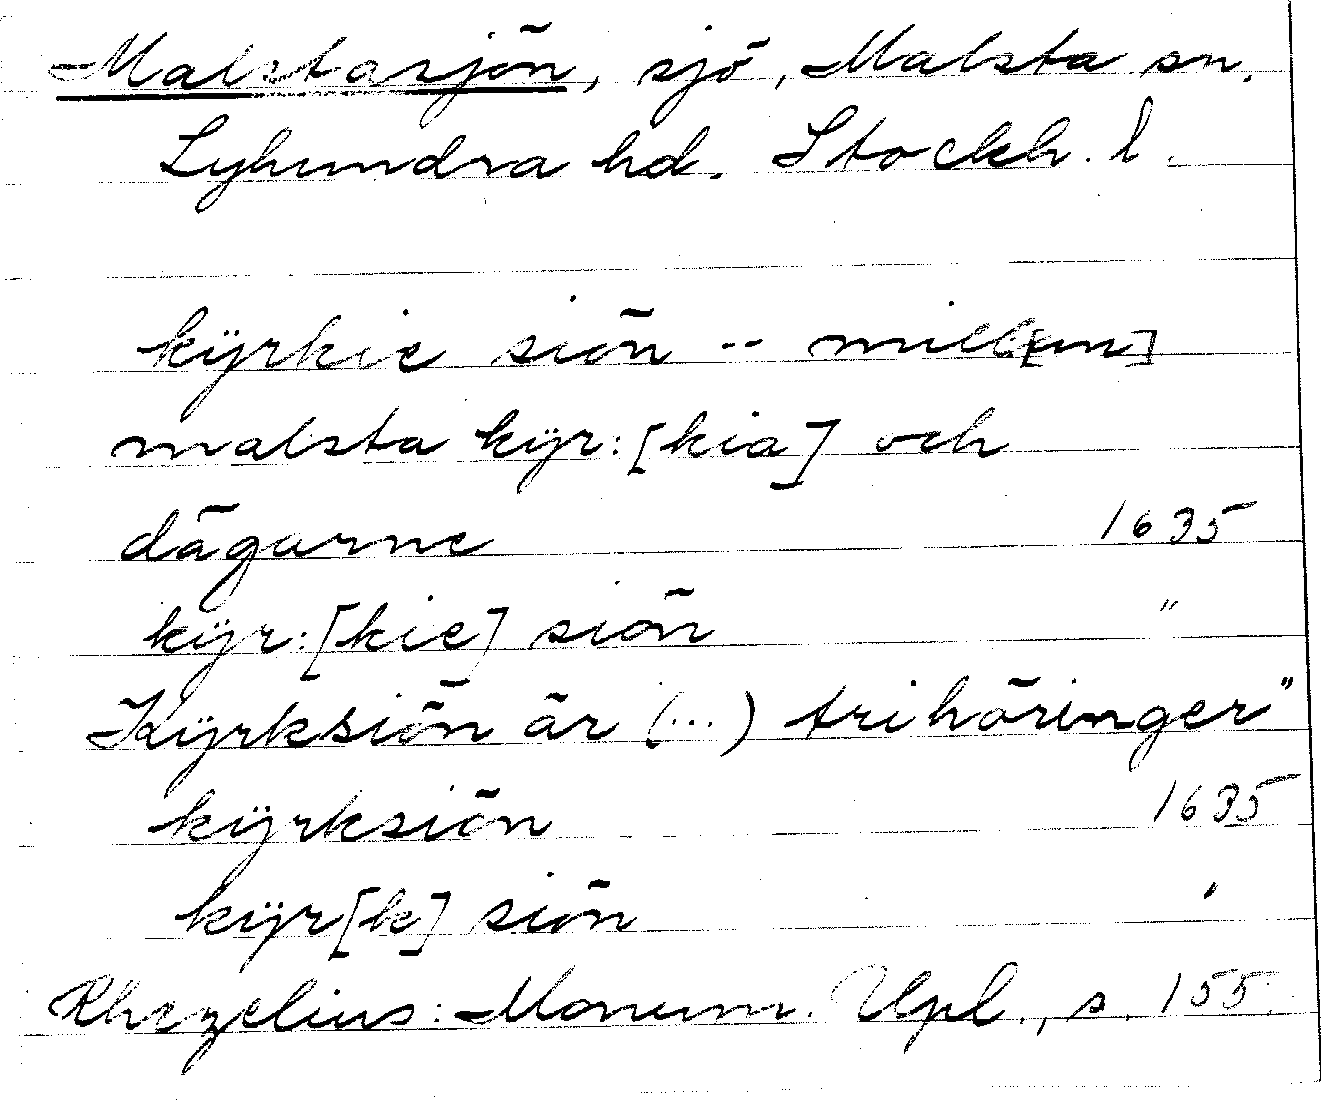 Malstasjön, sjö, Malsta sn.
Lyhundra hd. Stockh. l.
kÿrkie siön -- mill[un]
malsta kÿr:[kia] och
dägarne 1635
kÿr:[kie] siön "
Kÿrksiön är (...) trihöringer"
kÿrksiön 1635
kÿr[k] siön "
Rhezelius: Monum. Upl., s. 155.